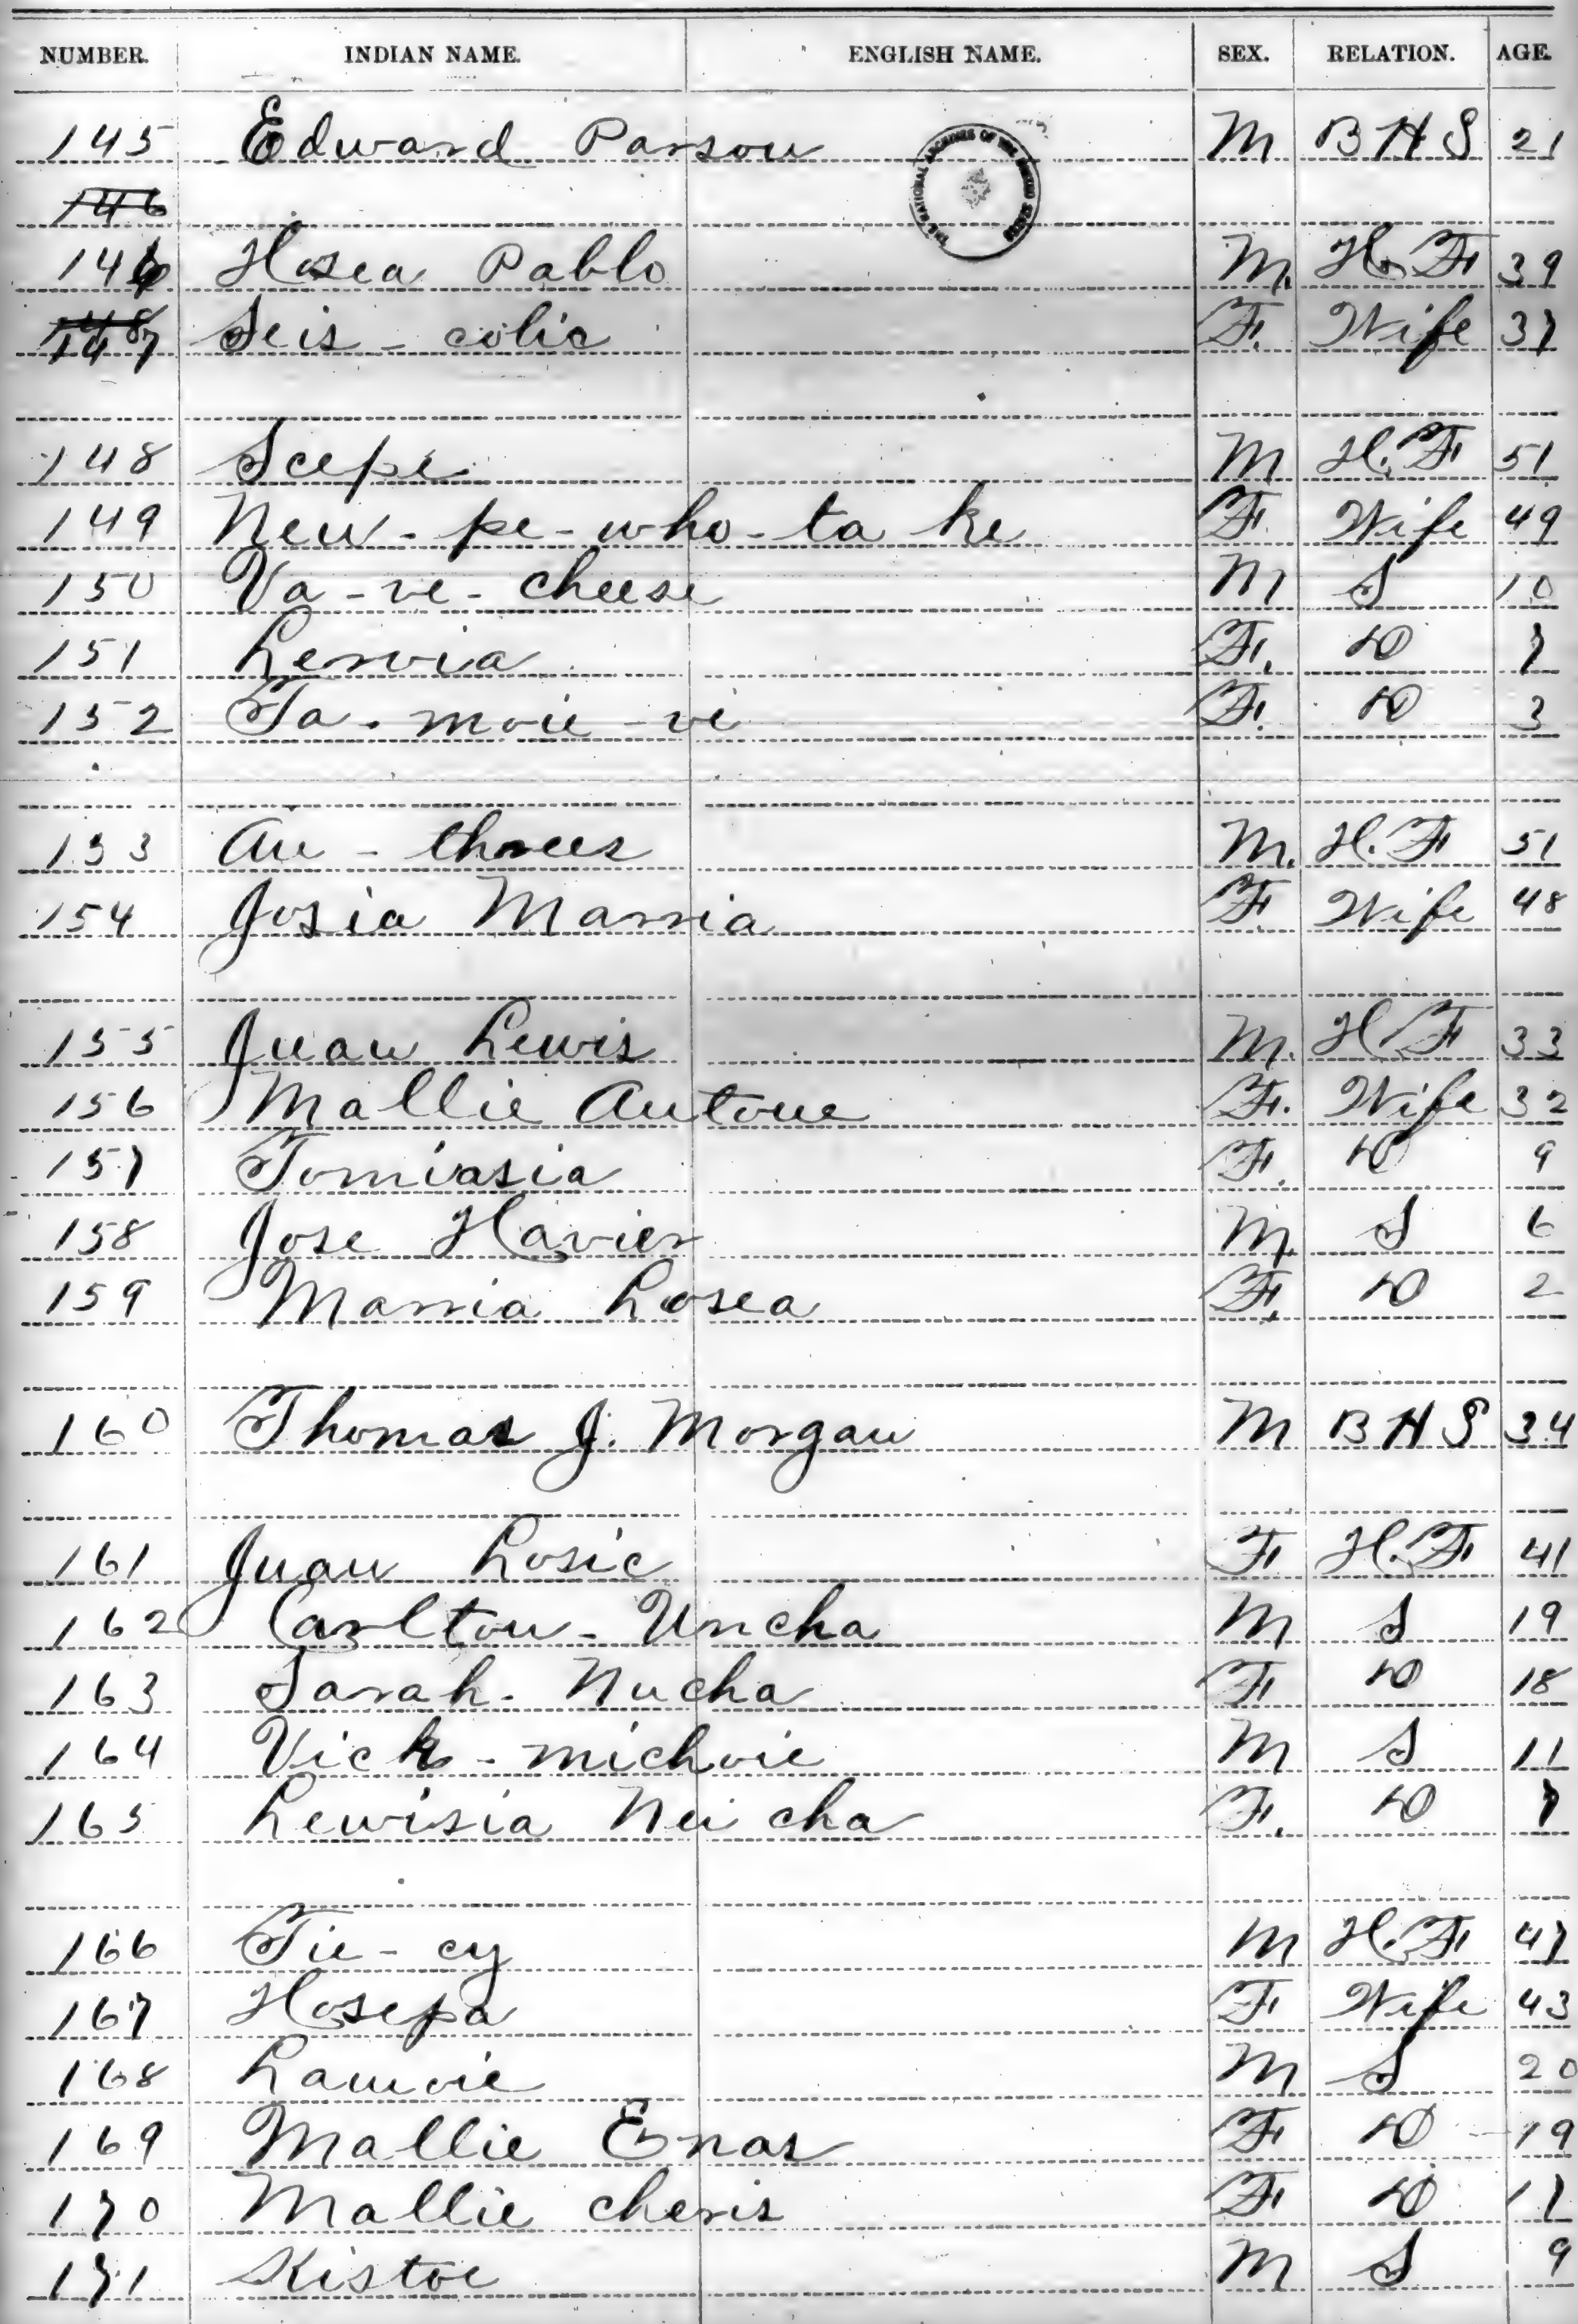 NUMBER. INDIAN NAME. ENGLISH NAME. SEX. RELATION. AGE.
145 Edward Parson M B H S 21
THE NATIONAL ARCHIVES OF THE UNITED STATES
146
146 Hosea Pablo M. H. F 39
147 Seis - colic F. Wife 37
148 Scepe M H. F 51
149 New - pe - who - ta ke F. Wife 49
150 Va - ve - cheese M S 10
151 Lervia F. D 7
152 Ta - moie - vi F. D 3
153 Au - threes M. H. F 51
154 Josia Marria F Wife 48
155 Juan Lewis M. H. F 33
156 Mallie Antone F. Wife 32
157 Tomiasia F. D 9
158 Jose Havier M. S 6
159 Marria Losea F. D 2
160 Thomas J. Morgan M B H S 34
161 Juan Losic F H. F 41
162 Carlton - Uncha M S 19
163 Sarah - Nucha F D 18
164 Vick - michoie M S 11
165 Lewisia Nucha F. D 7
166 Tie - cy M H. F 47
167 Hosepa F Wife 43
168 Lamoie M S 20
169 Mallie Enas F D 19
170 Mallie cheris F D 17
171 Kistoe M S 9